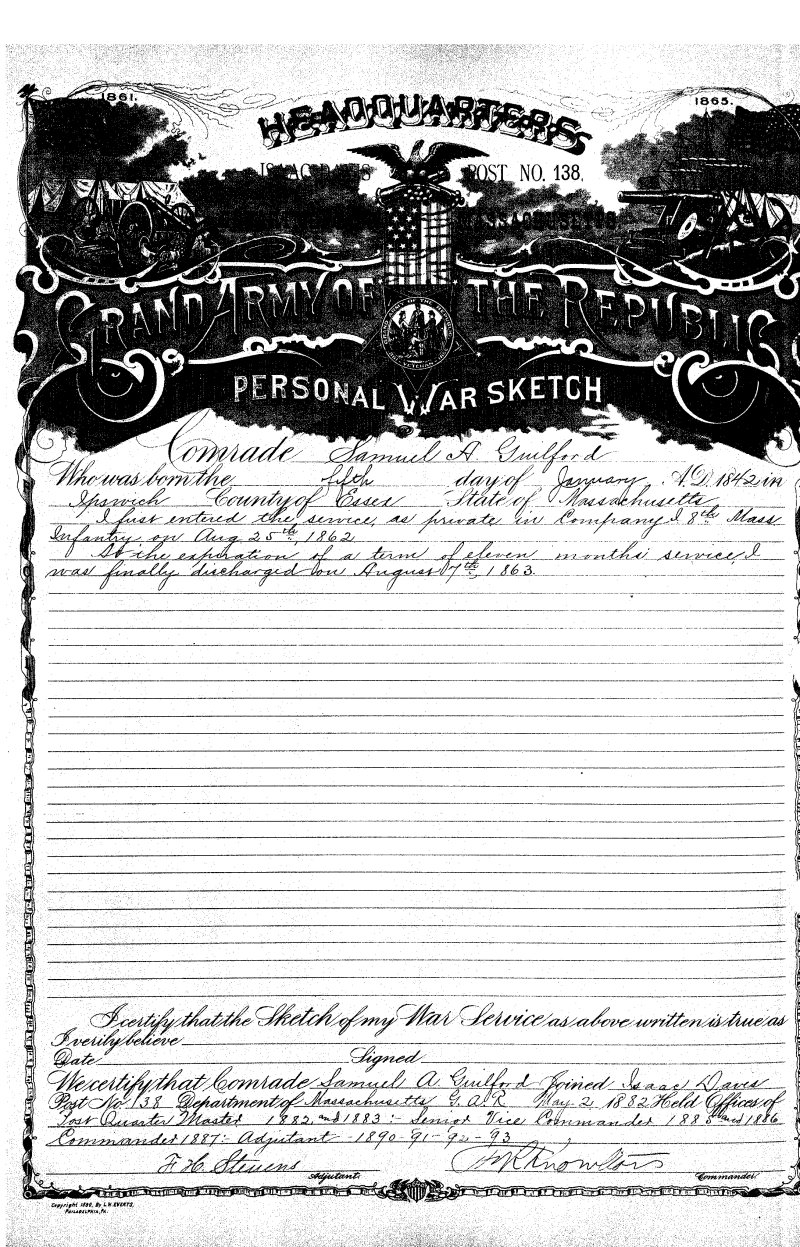 1861.
1865.
HEADQUARTERS
ISAAC DAVIS POST NO. 138,
MASSACHUSETTS
GRAND ARMY OF THE REPUBLIC
PERSONAL WAR SKETCH
Comrade Samuel A Guilford
Who was born the fifth day of January A.D. 1842 in
Ipswich County of Essex State of Massachusetts
I first entered the service, as private in Company I 8th Mass
Infantry on Aug 25th, 1862
At the expiration of a term of eleven months service, I
was finally discharged on August 7th, 1863.
I certify that the Sketch of my War Service as above written is true as
I verily believe
Date Signed
We certify that Comrade Samuel A Guilford Joined Isaac Davis
Post No. 138 Department of Massachusetts G.A.R. May 2 1882 Held Offices of
Post Quarter Master 1882, and 1883:- Senior Vice Commander 1885 and 1886
Commander 1887:- Adjutant - 1890-91-92-93
F. H. Stevens Knowlton
Adjutant. Commander.
Copyright 1890, By L. H. EVERTS,
PHILADELPHIA, PA.